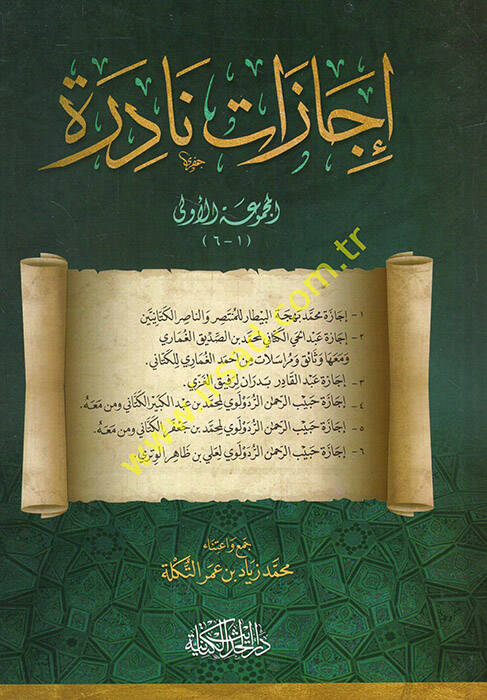 إِجَازَات نَادِرَة
جفري
المجموعة الأولى
(١-٦)
١- إجازة محمد بهجة البيطار للمنتصر والناصر الكتانيين
٢- إجازة عبد الحي الكتاني لمحمد بن الصديق الغماري
ومعها وثائق ومراسلات من أحمد الغماري للكتاني.
٣- إجازة عبد القادر بدران لرفيق الغزي.
٤- إجازة حبيب الرحمن الردولوي لمحمد بن عبد الكبير الكتاني ومن معه.
٥- إجازة حبيب الرحمن الردولوي لمحمد بن جعفر الكتاني ومن معه.
٦- إجازة حبيب الرحمن الردولوي لعلي بن ظاهر الوتري.
جمع واعتناء
محمد زياد بن عمر التكلة
دار الحديث الكتانية